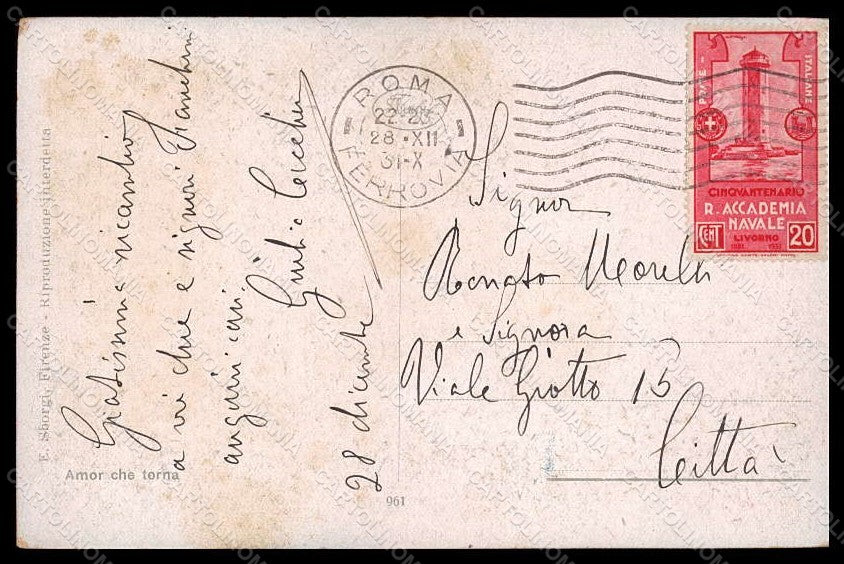 E. Sborgi, Firenze - Riproduzione interdetta
Gratissimi ricambio
a vi due e signori
auguri cari
Giulio
28 dicembre
Amor che torna
961
ROMA
22-23
28·XII
31-X
FERROVIA
POSTE
ITALIANE
CINQVANTENARIO
R. ACCADEMIA
NAVALE
LIVORNO
1881 1931
CENT 20
Signor
Renato Morelli
e Signora
Viale Giotto 15
Città
CARTOLINOMANIA